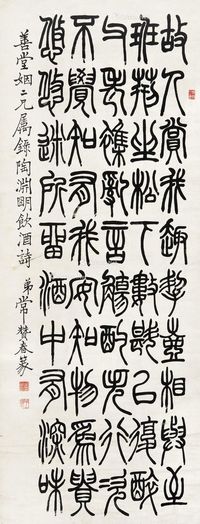 故人賞我趣挈壺相與至
班荊坐松下數斟已復醉
父老雜亂言觴酌失行次
不覺知有我安知物為貴
悠悠迷所留酒中有深味
善堂姻二兄屬錄陶淵明飲酒詩 弟常贊春篆